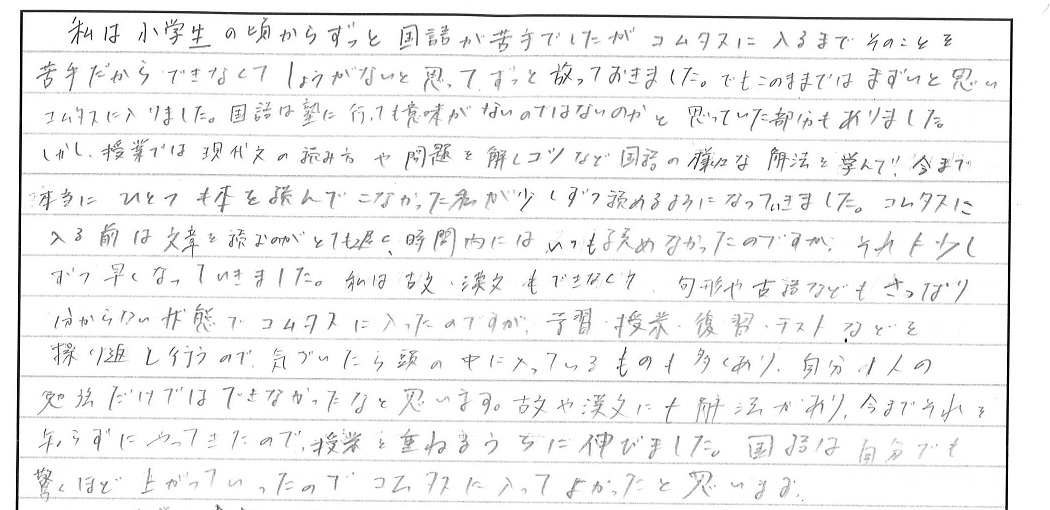 私は小学生の頃からずっと国語が苦手でしたがコムタスに入るまでそのことを
苦手だからできなくてしょうがないと思ってずっと放っておきました。でもこのままではまずいと思い
コムタスに入りました。国語は塾に行っても意味がないのではないのかと思っていた部分もありました。
しかし、授業では現代文の読み方や問題を解くコツなど国語の様々な解法を学んで、今まで
本当にひとつも本を読んでこなかった私が少しずつ読めるようになっていきました。コムタスに
入る前は文章を読むのがとても遅く、時間内にはいつも読めなかったのですが、それも少し
ずつ早くなっていきました。私は古文・漢文もできなくて、句形や古語などもさっぱり
分からない状態でコムタスに入ったのですが、予習・授業・復習・テストなどを
繰り返し行うので、気づいたら頭の中に入っているものも多くあり、自分1人の
勉強だけではできなかったなと思います。古文や漢文にも解法があり、今までそれを
知らずにやってきたので、授業を重ねるうちに伸びました。国語は自分でも
驚くほど上がっていったのでコムタスに入ってよかったと思います。